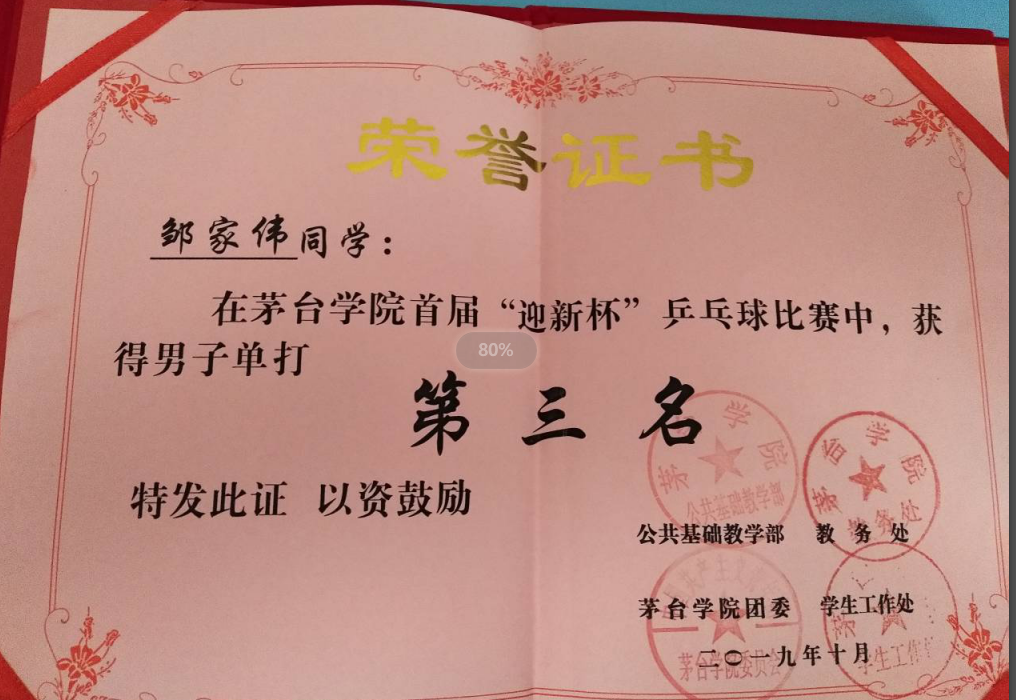 荣誉证书
邹家伟同学：
在茅台学院首届“迎新杯”乒乓球比赛中，获
得男子单打
80%
第三名
特发此证 以资鼓励
茅台学院
公共基础教学部
茅台学院
教务处
公共基础教学部 教务处
茅台学院团委 学生工作处
茅台学院委员会
学生工作
二〇一九年十月